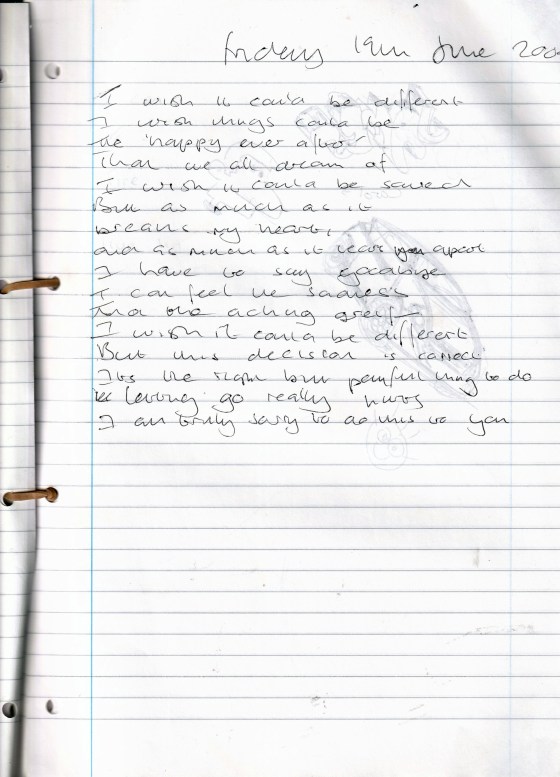 Friday 19th June 200
I wish it could be different
I wish things could be
the 'happy ever after'
That we all dream of
I wish it could be saved
But as much as it
breaks my heart,
and as much as it tears you apart
I have to say goodbye
I can feel the sadness
And the aching grief
I wish it could be different
But this decision is correct
Its the right but painful thing to do
letting go really hurts
I am truly sorry to do this to you